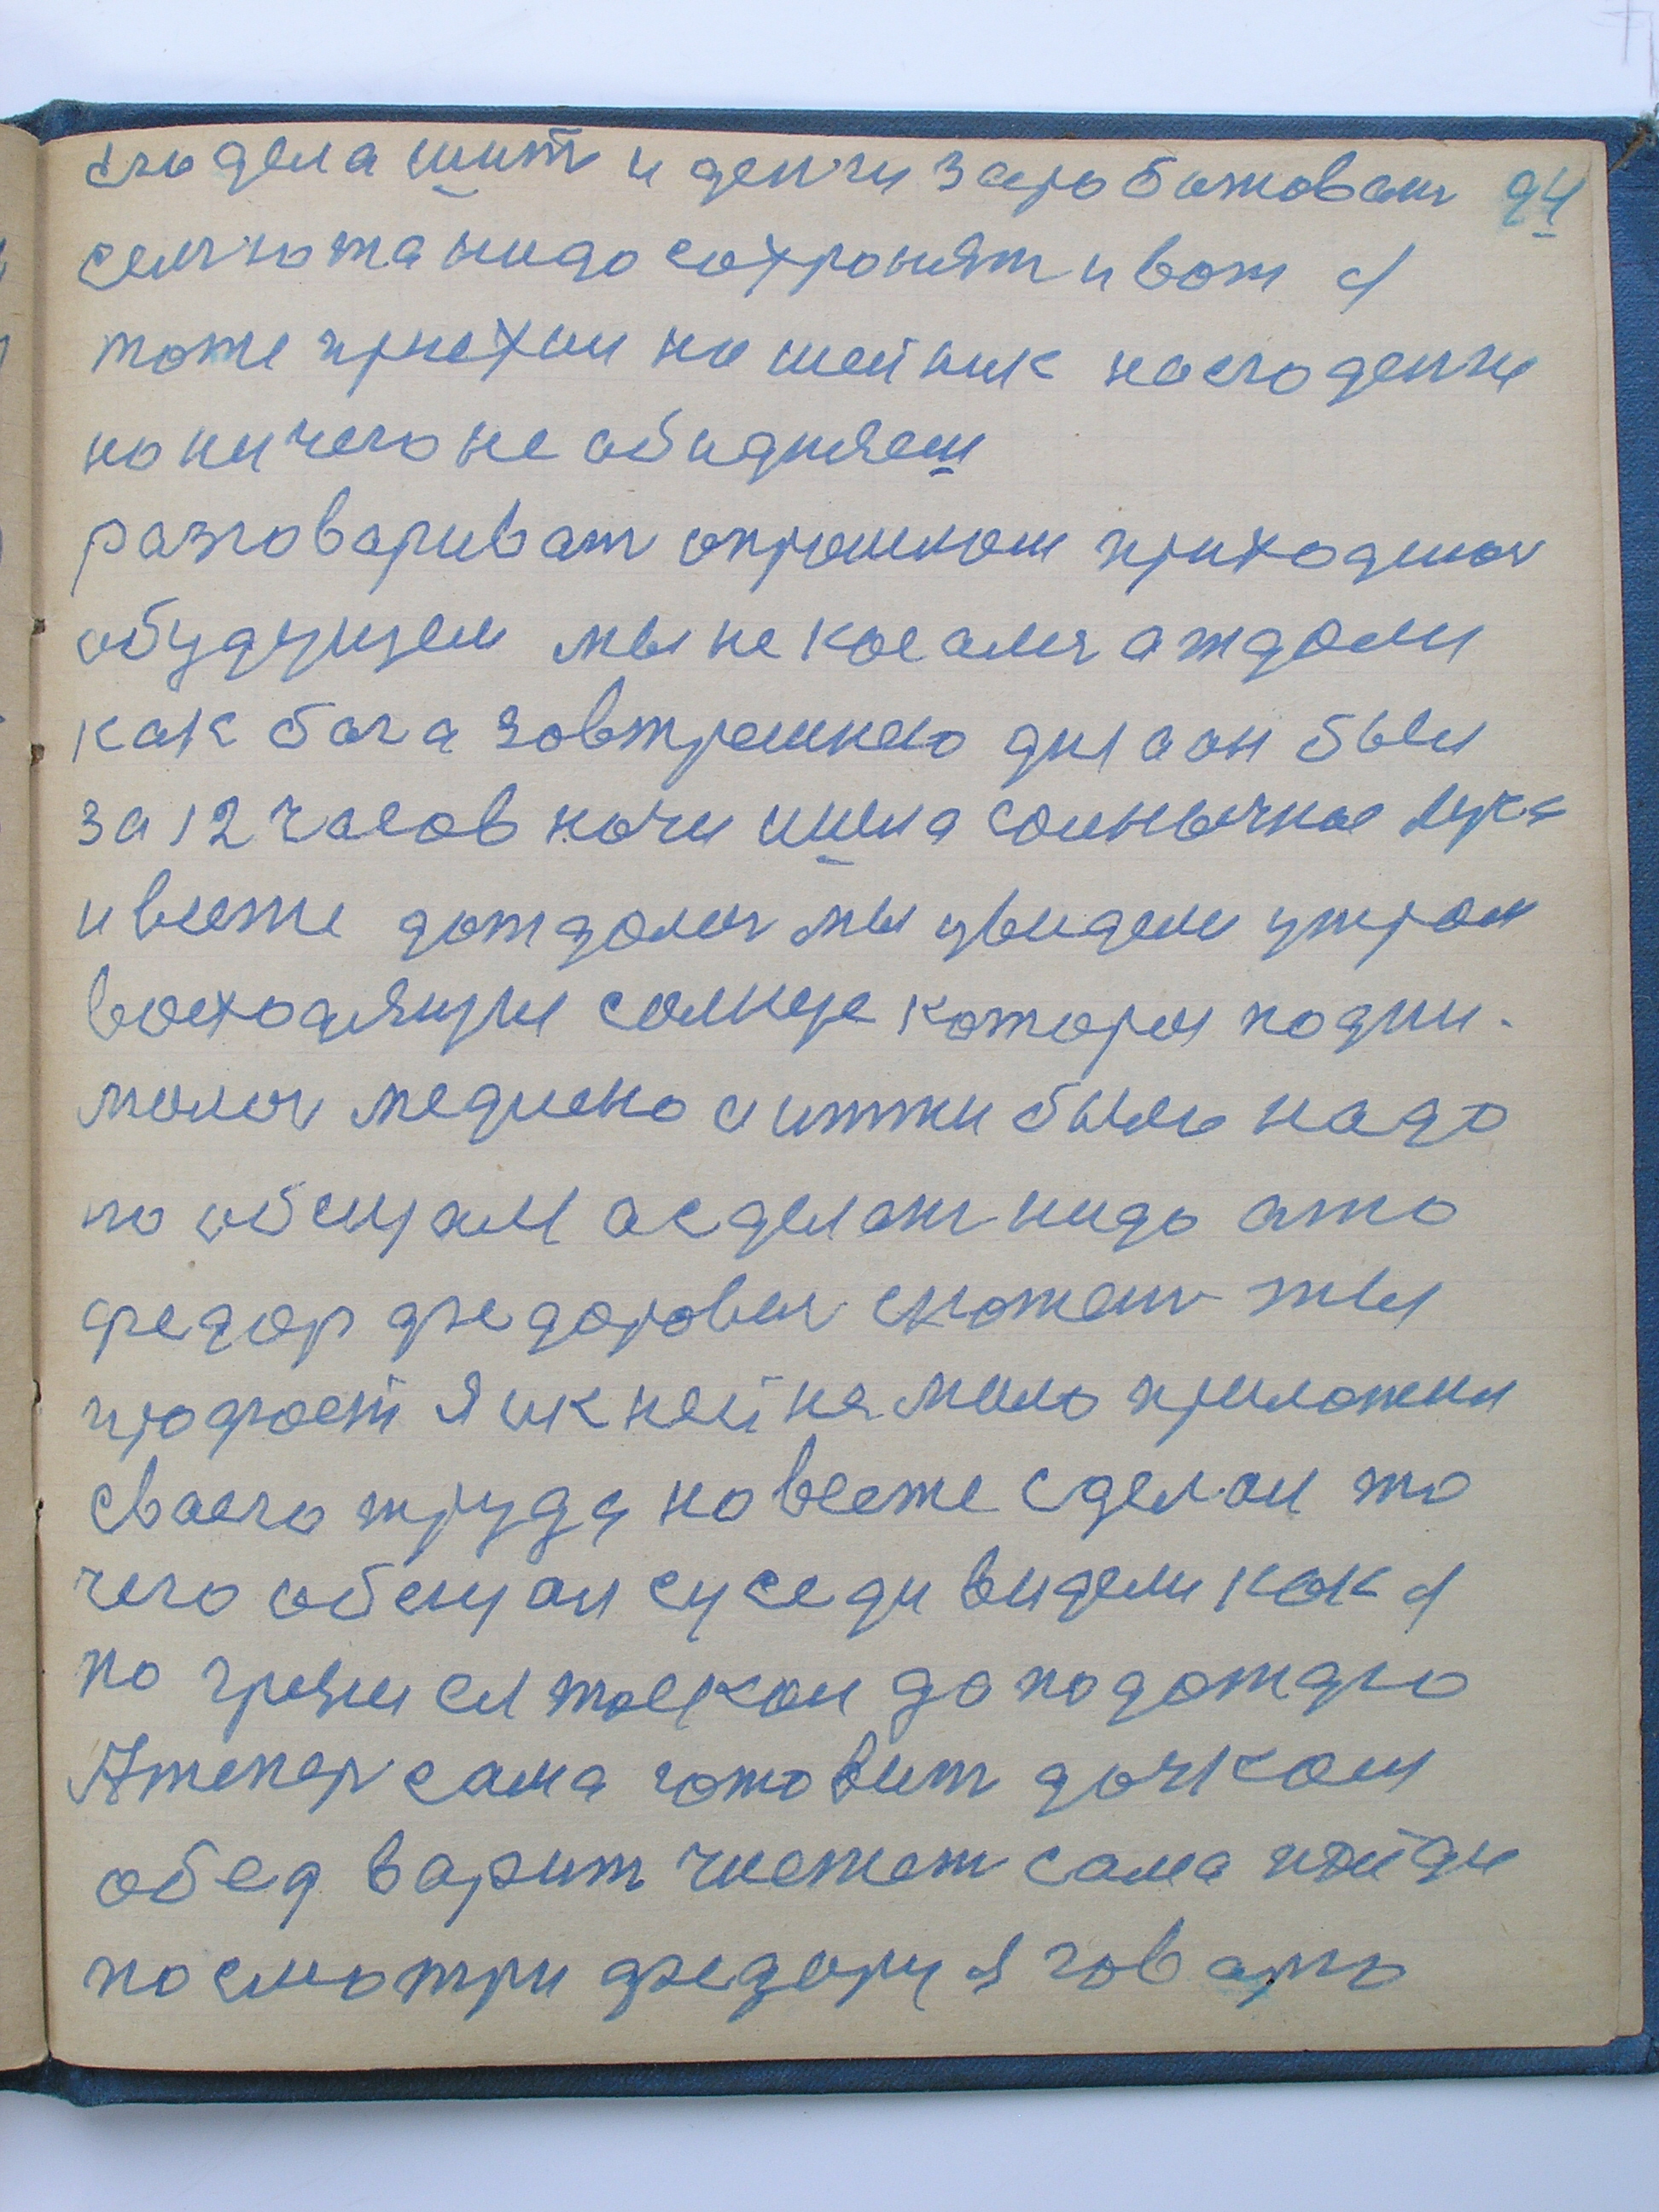 его дела шит и денги заробатоват 94
семю та нидо сохронят и вот я
тоже приехал на шейник на его денги
но ничего не обидняеш
разговариват опрошлом приходилос
обудущем мы не косалис а ждали
как бога завтрешнего дня а он был
за 12 часов ночи ишла солнычное луч
и всеже дождолис мы увидели утром
восходящия солнце которы подни-
молос медлено а итти было надо
по обещал а сделат нидо ато
федор федоровыч сможеш ты
профест Я ик ней не мало приложил
своего труда но всеже сделал то
чего обещал суседи видели как я
по грязи ея таскал да подождю
А тепер сама готовит дочкам
обед варит чистет сама пойди
посмотри федору я говарю